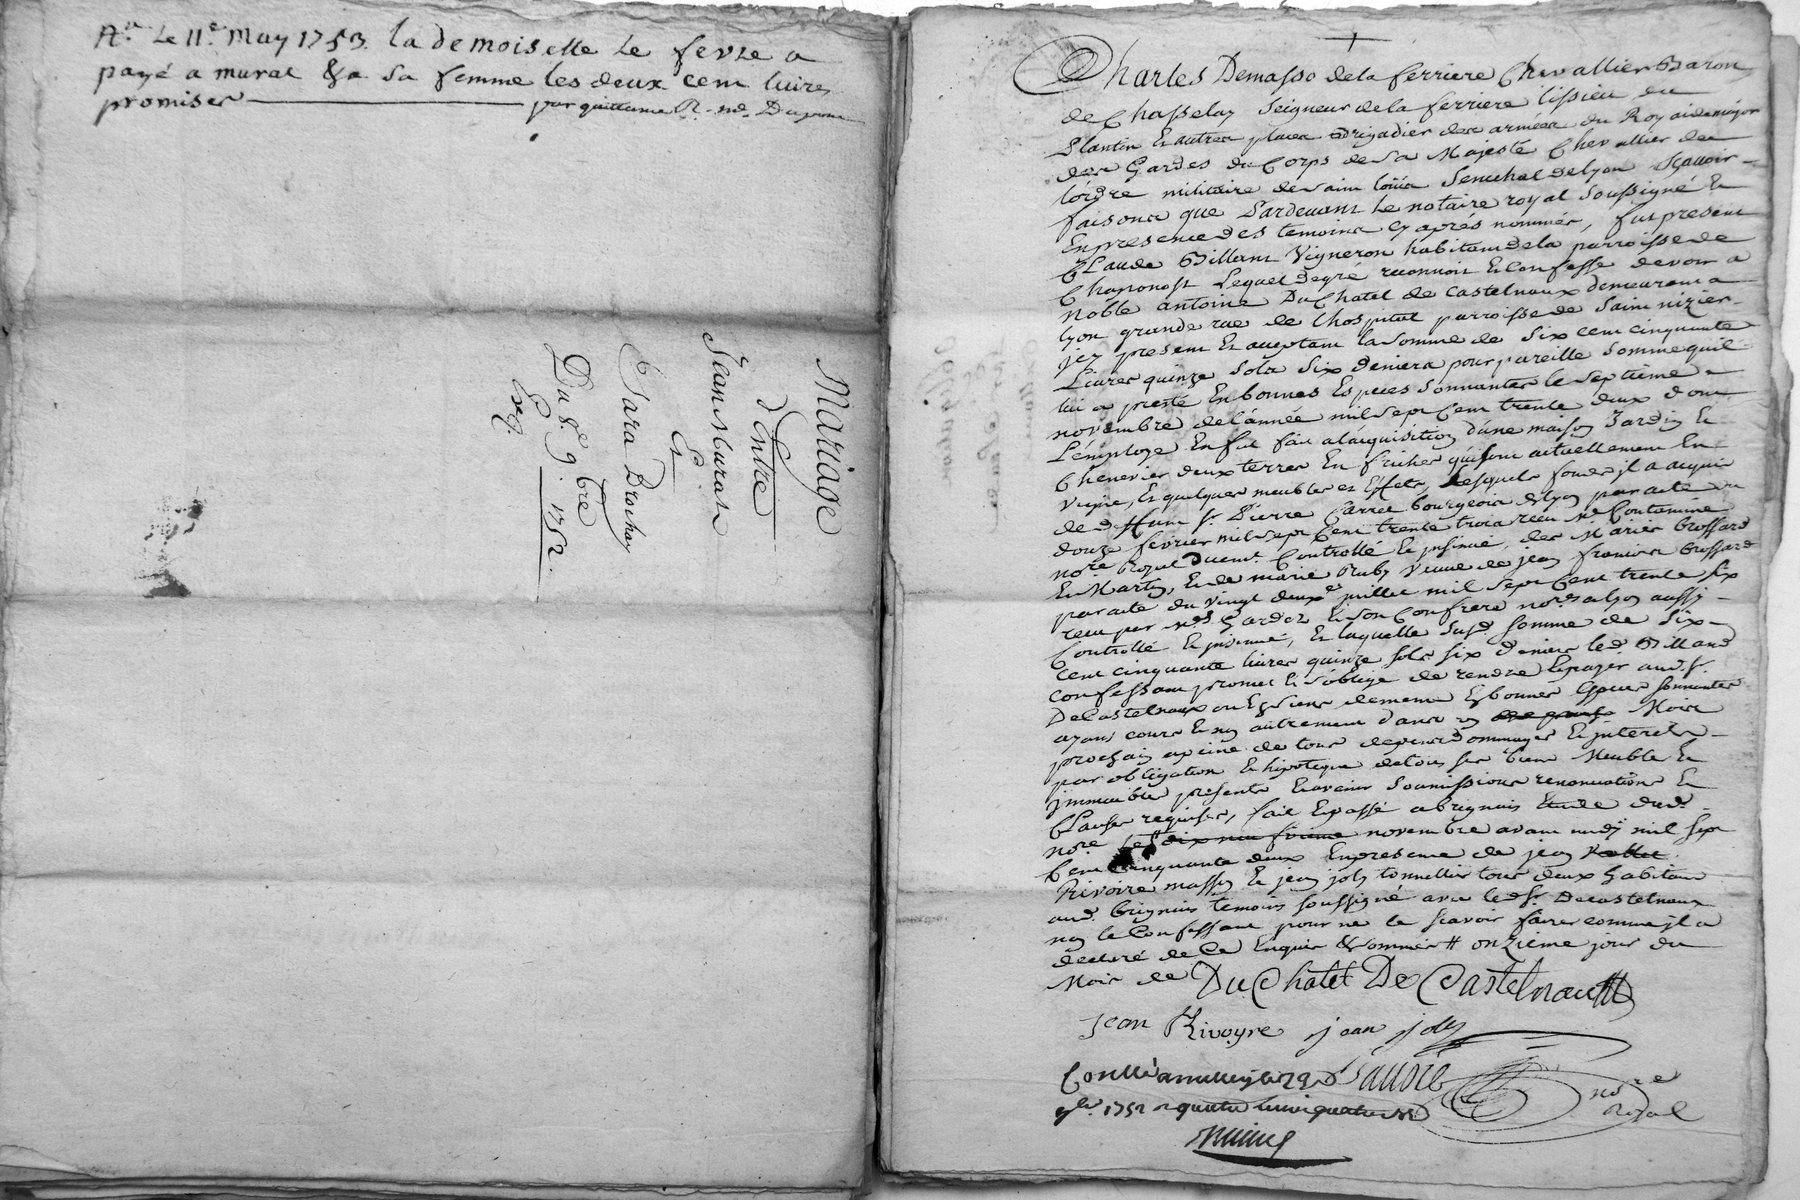 Le 11e May 1753. la demoiselle Le fevre a
payé a murat & a sa femme les deux cent livres
promises par quittance
Mariage
d'Entre
Jean Murat
Et
Clara Brochay
Du 8e 9bre 1752
Exg.
Charles Demasso dela ferriere Chevallier Baron
de Chasselay Seigneur dela ferriere lissieu du
Plantin Et autres places Brigadier des armées du Roy aidemajor
des Gardes du Corps de Sa Majesté Chevallier de
lordre militaire de saint loüis Senechal de Lyon Scavoir
faisons que Pardevant Le notaire royal soussigné Et
En presence des temoins cy aprés nommés, fut present
Claude Billant Vigneron habitant dela parroisse de
Chaponost Lequel degré reconnoit Et Confesse devoir a
Noble antoine DuChatel de Castelnaux demeurant a
Lyon grande rue de Lhospital parroisse de Saint nizier
jcy present Et aceptant la Somme de Six cent cinquante
Livres quinze Sols Six deniers pour pareille Somme quil
lui a presté En bonnes Especes Sonnantes le Septième
novembre de l'année mil Sept Cent trente deux dont
L'employe En fut fait a l'acquisition d'une maison Jardin Et
Chenevier deux terres En friches qui sont actuellement En
Vigne, Et quelques meubles et Effets, Lesquels fonds jl a acquis
de deffunt Sr. Pierre Carret bourgeois de Lyon par acte du
douze fevrier mil Sept Cent trente trois receu Me Contamine
nore Royal Duemt. Controllé Et jnsinué, des Mariés Brossard
Et Martin, Et de marie Ruby Veuve de jean francois Brossard
par acte du Vingt deuxe juillet mil Sept Cent trente Six
receu par Mes Gardez Et Son Confrere nores a Lyon aussy
Controllé Et jnsinué, Et laquelle Susd. Somme de Six
Cent cinquante livres quinze Sols Six deniers led. Billand
confessant promet Et s'oblige de rendre Et payer aud. Sr.
DeCastelnaux ou Es Siens de meme En bonnes Especes Sonnantes
ayant cours Et non autrement dans un Mois
prochain a peine de tous depens dommages Et jnterets
par obligation Et hipoteque de tous Ses biens Meuble Et
jmmeuble presents Et avenir Soumissions renonciations Et
Clauses requises, fait Et passé a brignais Etude dud.
nore Le dix neufvieme novembre avant midy mil Sept
Cent Cinquante deux En presence de jean
Rivoire masson Et jean joly tonnellier tous deux habitant
aud. brignais temoins Soussigné avec led. Sr. De Castelnaux
non le Confessant pour ne le Scavoir faire comme jl a
declaré de Ce Enquis & Sommé # onzieme jour du
Mois de DuChatel De Castelnau
jean Rivoyre jean joly
nore
Royal